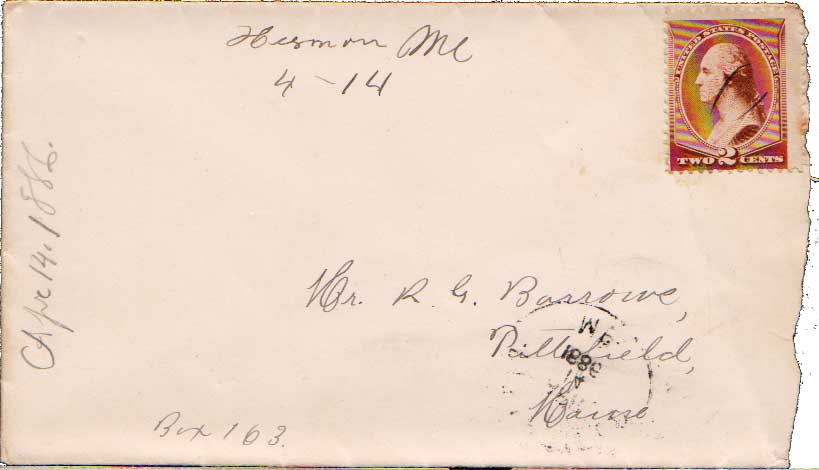 Hermon Me
4-14
UNITED STATES POSTAGE
TWO 2 CENTS
Apr 14, 1886.
Mr. R. G. Barrows,
Pittsfield,
Maine.
1886
Box 163.